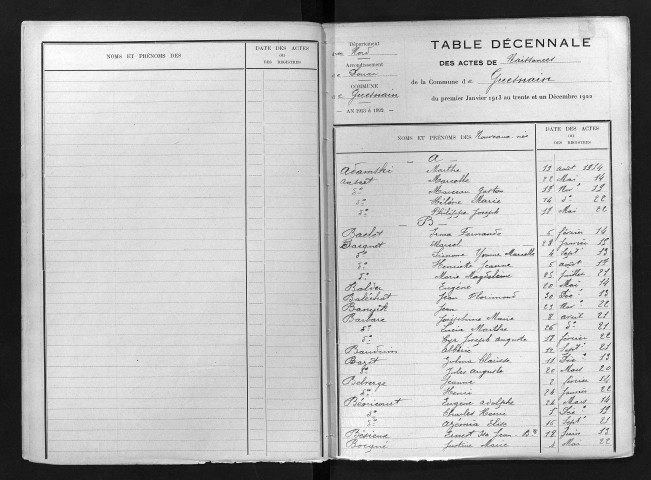 NOMS ET PRÉNOMS DES
DATE DES ACTES
OU
DES REGISTRES
Département
du Nord
Arrondissement
de Douai
COMMUNE
de Guesnain
AN 1913 à 1922
TABLE DÉCENNALE
DES ACTES DE Naissances
de la Commune de Guesnain
du premier Janvier 1913 au trente et un Décembre 1922
NOMS ET PRÉNOMS DES Nouveaux-nés
DATE DES ACTES
OU
DES REGISTRES
A
Adamski Marthe 19 août 1914
Ansart Marcelle 22 Mai 14
d° Marceau Gaston 18 Nov 19
d° Hélène Marie 24 d° 22
d° Philippe Joseph 18 Mai 22
B
Baclet Irma Fernande 6 février 14
Bacquet Marcel 28 Janvier 13
d° Simone Yvonne Marcelle 4 Sept 13
d° Jeanne 6 août 19
d° Marie Magdeleine 25 Juillet 21
Eugène 20 Mai 14
Jean Florimond 30 13
Jean 23 Nov 22
Barbare Joséphine Marie 8 avril 21
d° Lucia Marthe 26 d° 21
d° Cyr Joseph Auguste 18 février 22
12 Sept 21
Julma 18 13
d° Jules Auguste 20 Mars 20
Jeanne 2 février 14
d° Henri 24 Janvier 22
Bénicourt Eugène Adolphe 24 Mars 14
d° Charles Henri 5 19
d° Azémia Elise 16 Sept 21
Ernest Jean Bte 12 Juin 13
Bocqué Justine Marie 1 Mai 22